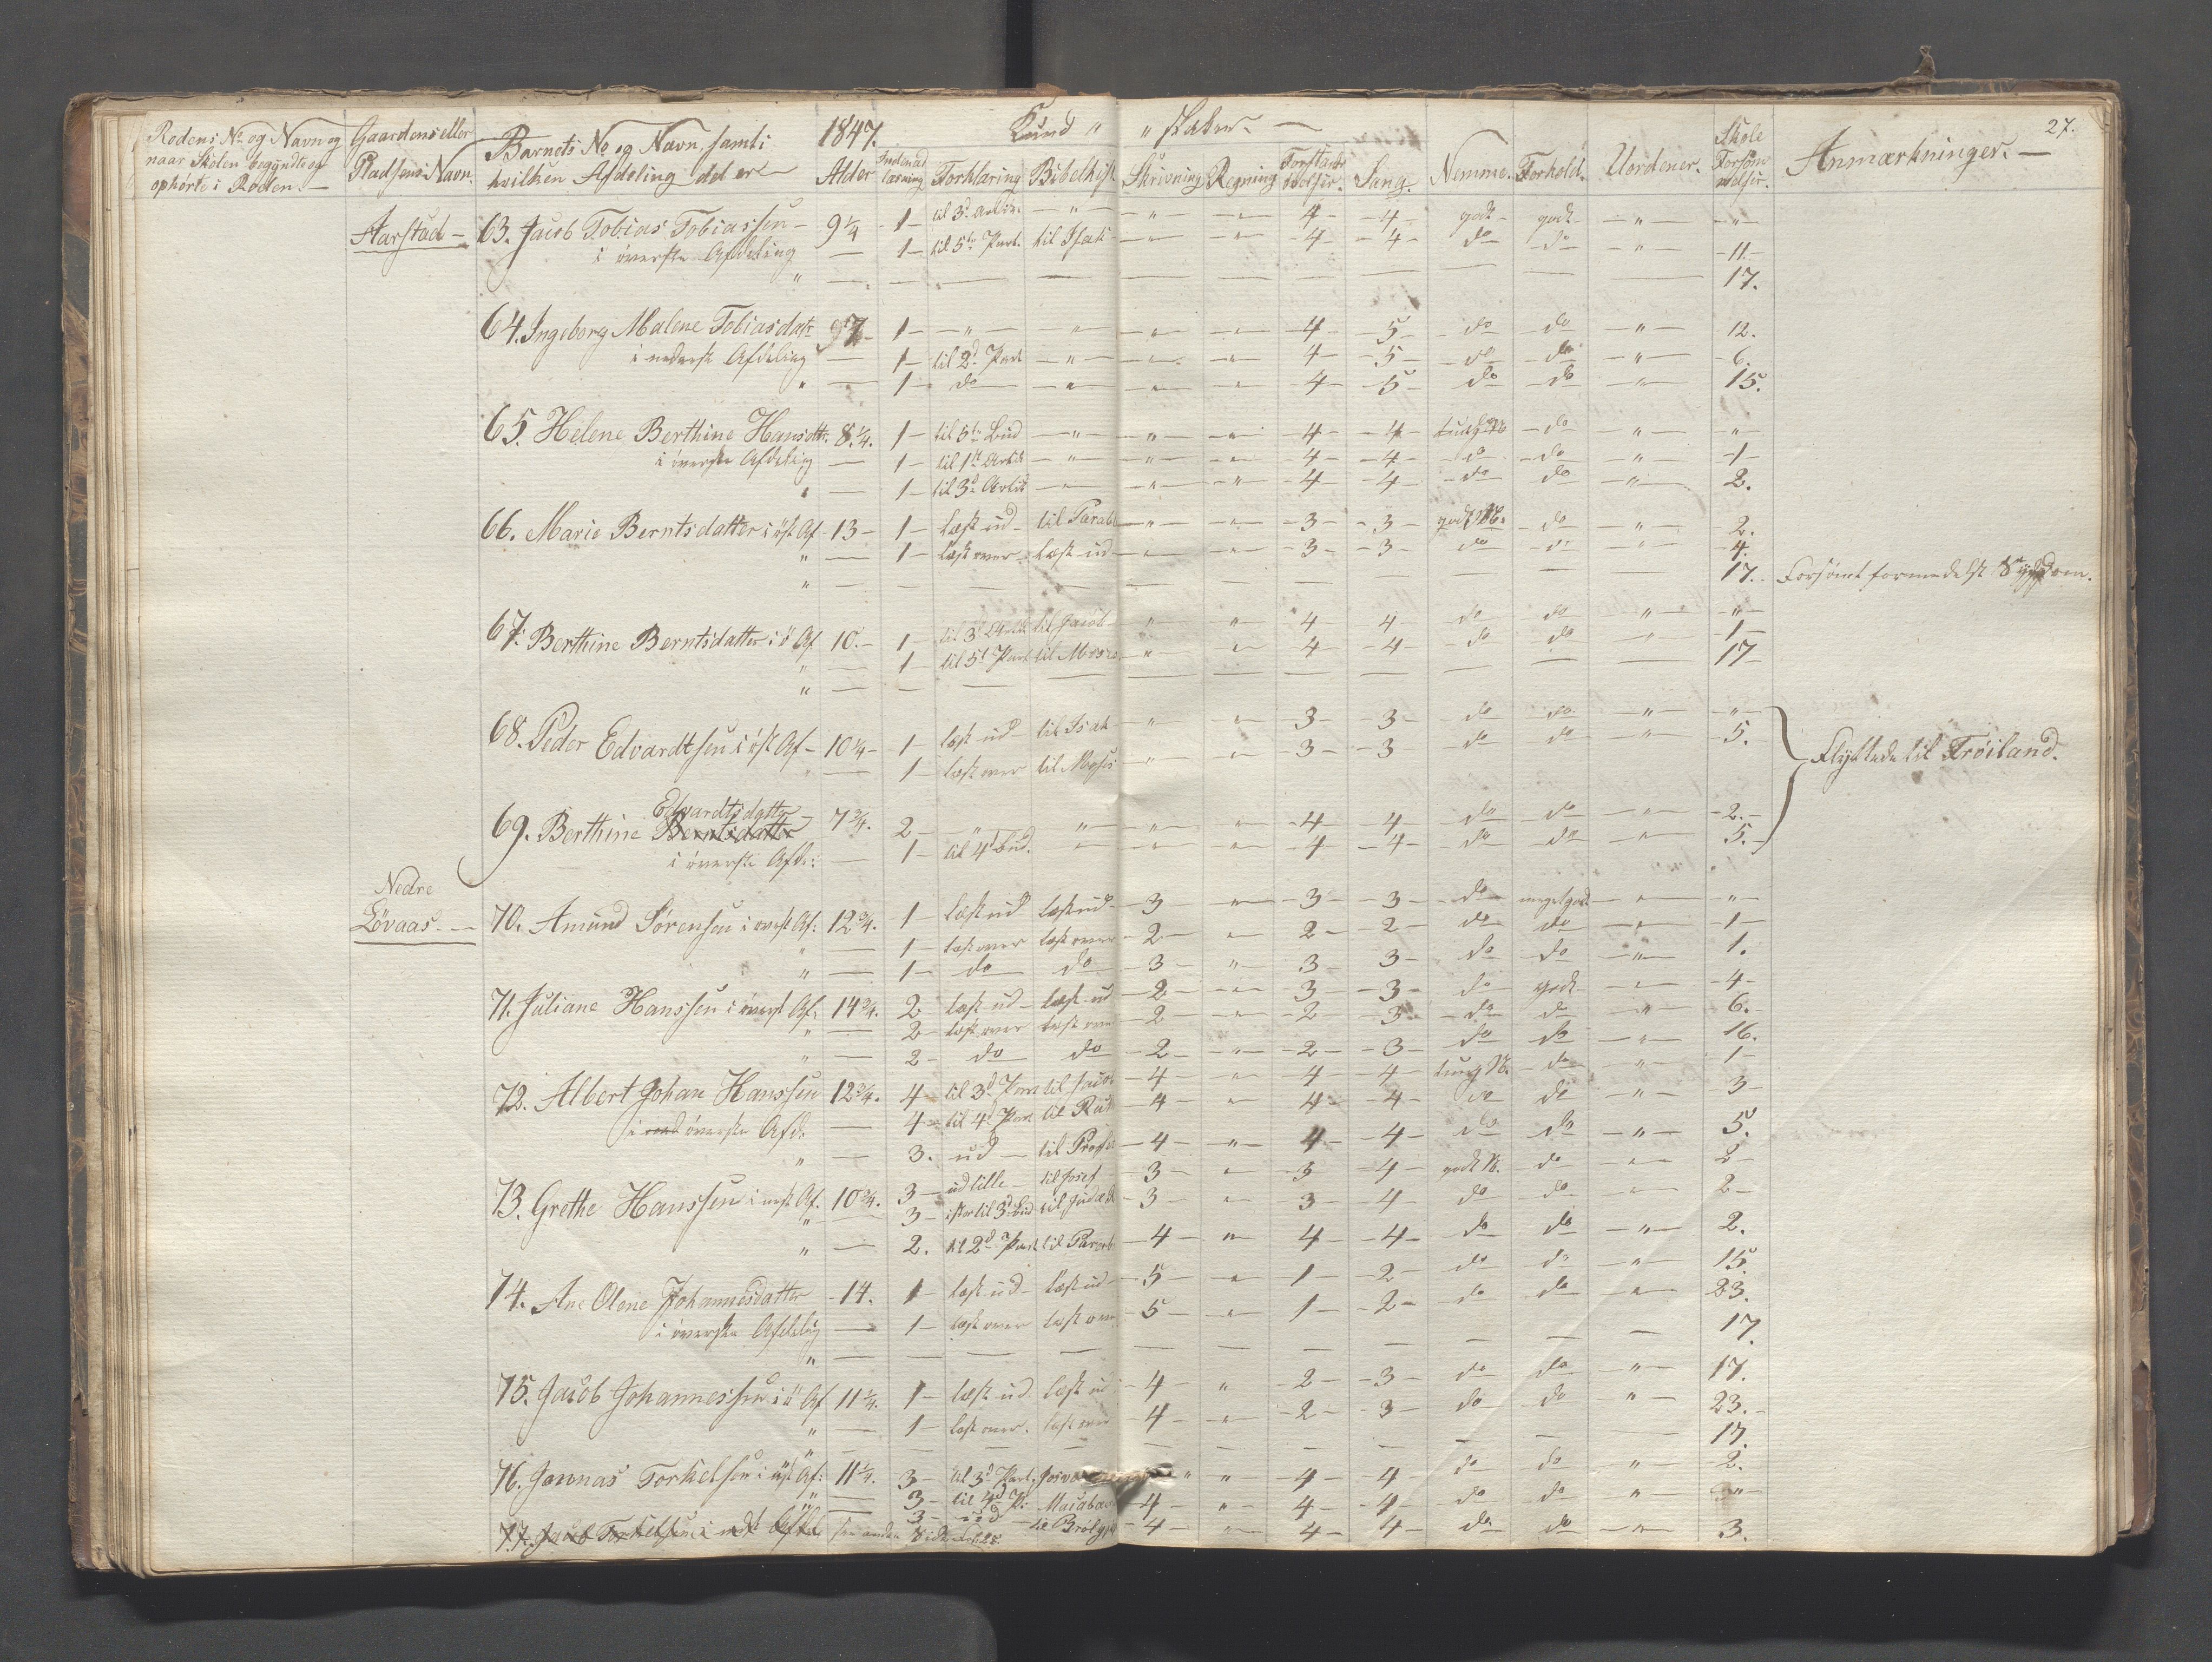 27.
Rodens No og Navn og naar Skolen begyndte og ophørte i Roden. — | Gaardens eller Pladsens Navn. | Barnets No og Navn, samt i hvilken Afdeling det er — | 1847. Alder | Indenad læsning | Kund " " skaber. — Forklaring | Bibelhist. | Skrivning | Regning | Forstands øvelser. | Sang. | Nemme. | Forhold. | Uordener. | Skole Forsømmelser. | Anmærkninger. —
Aarstad — 63. Jacob Tobias Tobiassen — 9¼ 1 — til 3d. Artik. — " — — " — — " — 4 — 4 — godt — godt — " — — " —
i øverste Afdeling — 1 — til 5te Part. til Isak — " — — " — 4 — 4 — do do — " — 11. —
" — — — — — — — — — — — 17.
64. Ingeborg Malene Tobiasdatr 9½ 1 — " — " — " — " — 4 — 5 — do — do — " — 12.
i nederste Afdeling — 1 — til 2d Part — " — " — " — 4 — 5 — do — do — " — 6.
" — 1 — do — " — " — " — 4 — 5 — do — do — " — 15.
65. Helene Berthine Hansdttr. 8¼. 1 — til 5te Bud — " — " — " — 4 — 4 — tungt N. — do — " — " —
i øverste Afdeling — 1 — til 1st Artik — " — " — " — 4 — 4 — do — do — " — 1 —
" — 1 — til 3d Artik — " — " — " — 4 — 4 — do — do — " — 2.
66. Marie Berntsdatter i øst Af. 13 — 1 — læst ud — til Parab. — " — " — 3 — 3 — godt N. — do — " — 2.
" — 1 — læst over — læst ud — " — " — 3 — 3 — do — do — " — 4.
" — — — — — — — — — — — 17. Forsømt formedelst Sygdom.
67. Berthine Berntsdatter i ø Af 10. — 1 — til 3d Artik til Jacob — " — " — 4 — 4 — do — do — " — " —
" — 1 — til 5t Part til Moses — " — " — 4 — 4 — do — do — " — 1 —
" — — — — — — — — — — — 17 —
68. Peder Edvardtsen i øst Af — 10¼ — 1 — læst ud til Isak — " — " — 3 — 3 — do — do — " — " —
— 1 — læst over til Moses — " — " — 3 — 3 — do — do — " — 5.
Flyttede til Frøiland.
Edvardtsdatter
69. Berthine Berntsdatter 7¾. 2 — " — " — " — " — 4 — 4 — do — do — " — 2. —
i øverste Afd: — 1 — til 4d bud. — " — " — " — 4 — 4 — do — do — " — 5. —
Nedre
Løvaas — 70. Amund Sørensen i øvest Af: 12¾. 1 — læst ud læst ud — 3 — " — 3 — 3 — do meget godt — " — " —
" — 1 — læst over læst over — 2 — " — 2 — 2 — do — do — " — 1 —
" — 1 — do do — 3 — " — 3 — 3 — do — do — " — 1.
71. Juliane Hanssen i øverst Af: 14¾. 2 læst ud — læst ud — 2 — " — 3 — 3 — do godt — " — 4 —
" — 2 — læst over læst over — 2 — " — 2 — 3 — do — do — " — 6. —
" — 2 — do do — 2 — " — 2 — 3 — do — do — " — 16.
72. Albert Johan Hanssen 12¾. 4 — til 3d Part til Jacob — 4 — " — 4 — 4 — tungt N. — do — " — 1 —
i øverste Afd: — 4 — til 4 Part til Rut — 4 — " — 4 — 4 — do — do — " — 3 —
" — 3. ud — til — 4 — " — 4 — 4 — do — do — " — 5.
73. Grethe Hanssen i øvst Af. 10¾. 3 — ud lille — til Josef — 3 — " — 3 — 4 — godt N. — do — " — 2 —
" — 3 — i stor til 3d bud til — 3 — " — 3 — 4 — do — do — " — 2 —
" — 2. til 2d Part til Parab — 4 — " — 4 — 4 — do — do — " — 2.
74. Ane Olene Johannesdatter — 14. 1 — læst ud — læst ud — 5 — " — 1 — 2 — do — do — " — 15.
i øverste Afdeling — 1 — læst over læst over — 5 — " — 1 — 2 — do — do — " — 23.
" — — — — — — — — — — — 17.
75. Jacob Johannessen i ø Af 11¼. 1 — læst ud læst ud — 4 — " — 2 — 3 — do — do — " — 17.
" — 1 — læst over. læst over — 4 — " — 2 — 3 — do — do — " — 23. —
" — — — — — — — — — — — 17.
76. Jonnas Torkelsen i øst Af: 11¼. 3 — til 3d Part. Josva " " — 4 — 4 — do — do — " — 2.
" — 3 — til 4d P: — 4 — " — 4 — 4 — do — do — " — " —
" — 3 — ud — til — 4 — " — 4 — 4 — do — do — " — 3.
77. Jacob Torkelsen i nedst Afdel see anden Side